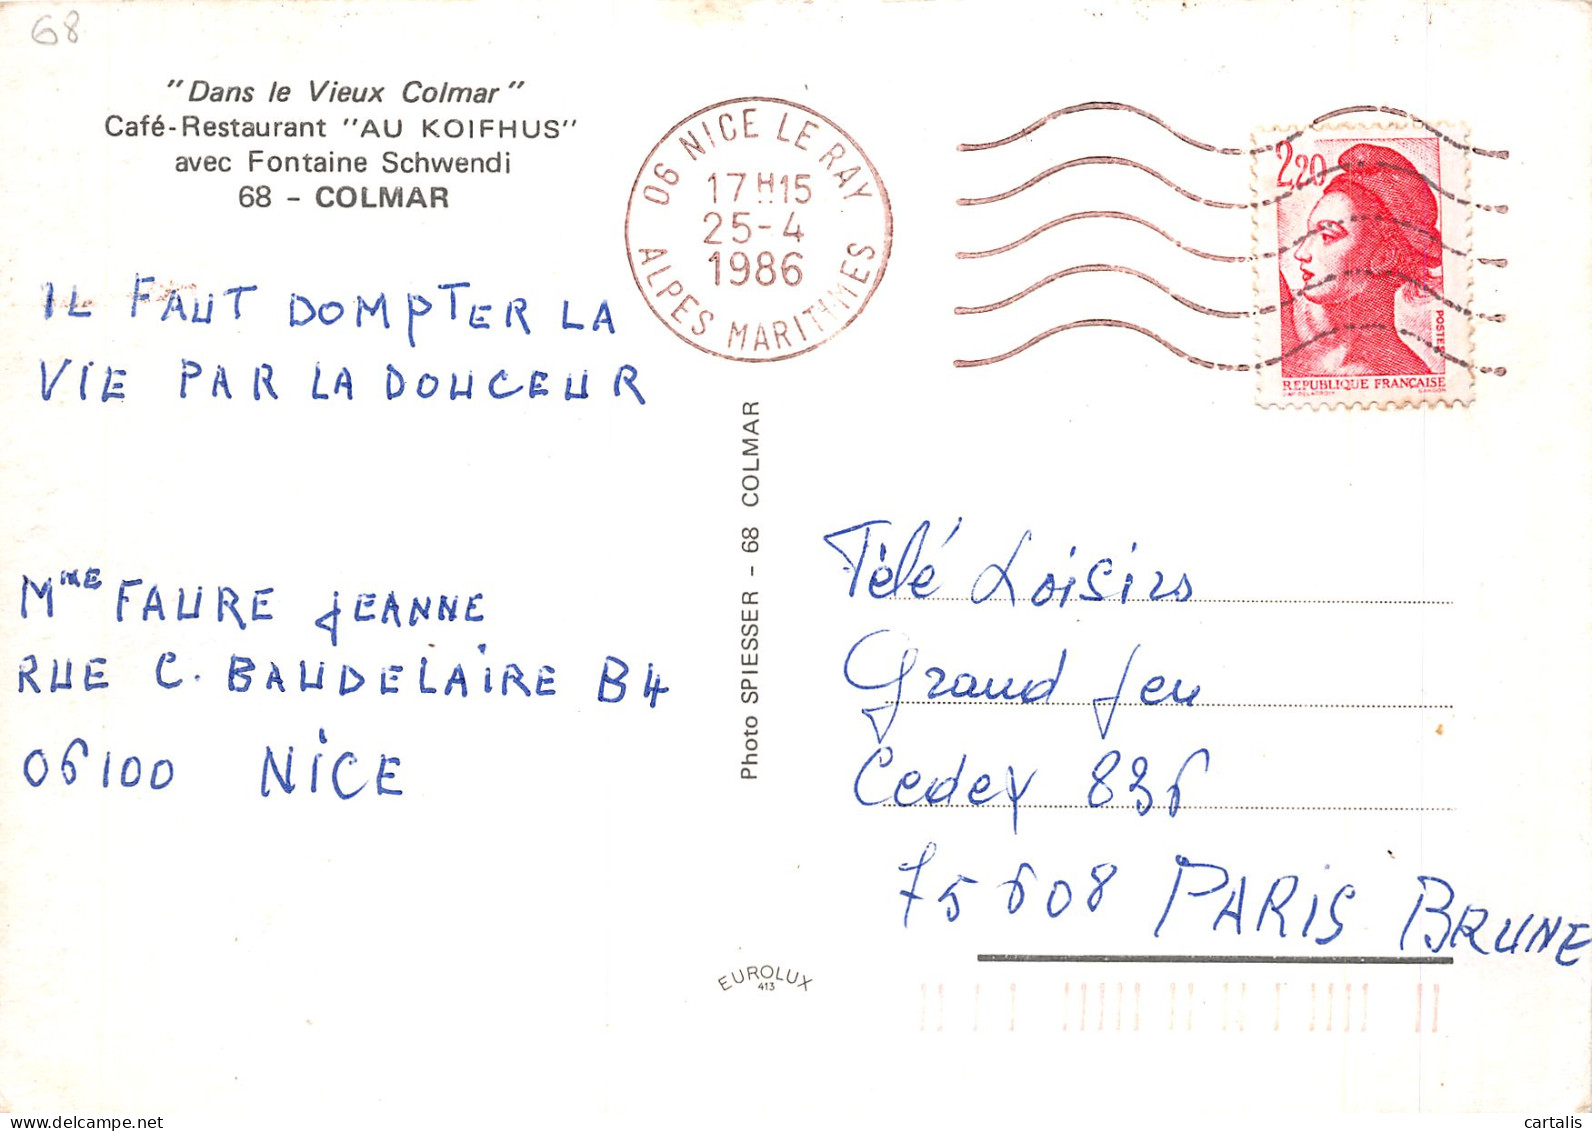 68
"Dans le Vieux Colmar"
Café-Restaurant "AU KOIFHUS"
avec Fontaine Schwendi
68 - COLMAR
06 NICE LE RAY
17H15
25-4
1986
ALPES MARITIMES
2,20
POSTES
REPUBLIQUE FRANÇAISE
GANDON
IL FAUT DOMPTER LA
VIE PAR LA DOUCEUR
Mme FAURE JEANNE
RUE C. BAUDELAIRE B4
06100 NICE
Photo SPIESSER - 68 COLMAR
Télé Loisirs
Grand Jeu
Cedex 836
75608 PARIS BRUNE
EUROLUX
413
cartalis
www.delcampe.net